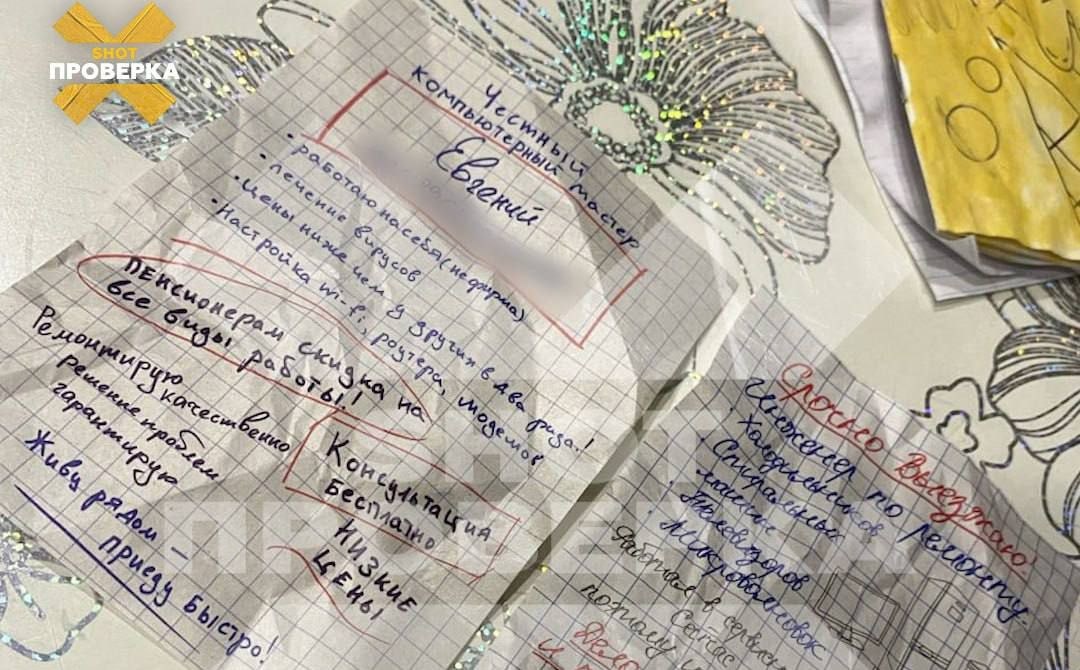 SHOT
ПРОВЕРКА
Честный
компьютерный мастер
Евгений
· работаю на себя (не фирма)
· лечение вирусов
· Цены ниже чем у других в два раза!
· Настройка wi-fi, роутера, модемов
Пенсионерам скидка на
все виды работы!
Ремонтирую
качественно
решение проблем
гарантирую
Консультация
Бесплатно
Живу рядом –
приеду быстро!
Низкие
цены
Срочно выезжаю!
Инженер по ремонту
· Холодильников
· Стиральных
машин
· Телевизоров
· Микроволновок
Работал в
Сейчас
потому
SHOT
ПРОВЕРКА